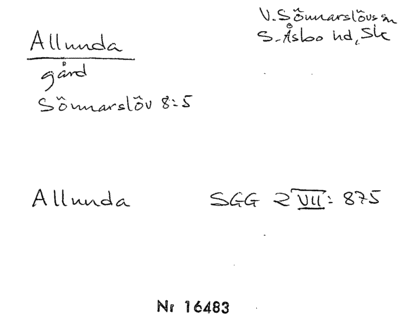 Allunda
gård
Sönnarslöv 8:5
V. Sönnarslövs sn
S. Åsbo hd, Sk
Allunda SGG 2 VII: 875
Nr 16483